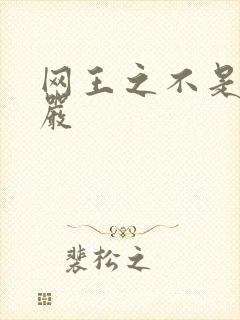 网王之不是
嚴
裴松之